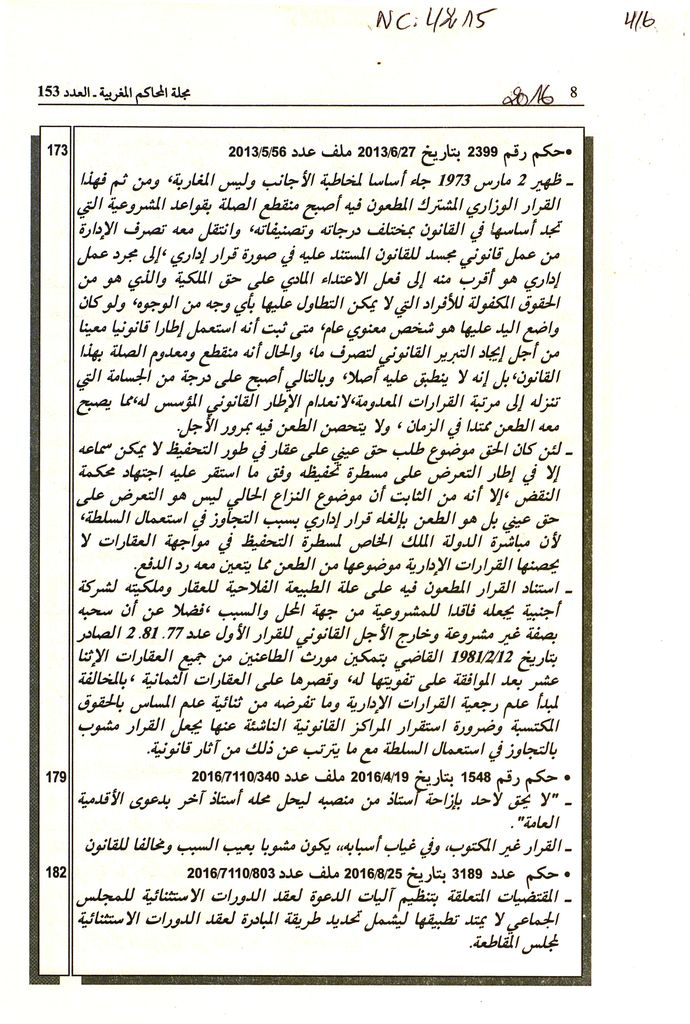 NC: 4815 4/6
2016 8 مجلة المحاكم المغربية ـ العدد 153
• حكم رقم 2399 بتاريخ 2013/6/27 ملف عدد 2013/5/56 173
ـ ظهير 2 مارس 1973 جاء أساسا لمخاطبة الأجانب وليس المغاربة، ومن ثم فهذا
القرار الوزاري المشترك المطعون فيه أصبح منقطع الصلة بقواعد المشروعية التي
تجد أساسها في القانون بمختلف درجاته وتصنيفاته، وانتقل معه تصرف الإدارة
من عمل قانوني مجسد للقانون المستند عليه في صورة قرار إداري ،إلى مجرد عمل
إداري هو أقرب منه إلى فعل الاعتداء المادي على حق الملكية والذي هو من
الحقوق المكفولة للأفراد التي لا يمكن التطاول عليها بأي وجه من الوجوه، ولو كان
واضع اليد عليها هو شخص معنوي عام، متى ثبت أنه استعمل إطارا قانونيا معينا
من أجل إيجاد التبرير القانوني لتصرف ما، والحال أنه منقطع ومعدوم الصلة بهذا
القانون،بل إنه لا ينطبق عليه أصلا، وبالتالي أصبح على درجة من الجسامة التي
تنزله إلى مرتبة القرارات المعدومة،لانعدام الإطار القانوني المؤسس له،مما يصبح
معه الطعن ممتدا في الزمان ، ولا يتحصن الطعن فيه بمرور الأجل.
ـ لئن كان الحق موضوع طلب حق عيني على عقار في طور التحفيظ لا يمكن سماعه
إلا في إطار التعرض على مسطرة تحفيظه وفق ما استقر عليه اجتهاد محكمة
النقض ،إلا أنه من الثابت أن موضوع النزاع الحالي ليس هو التعرض على
حق عيني بل هو الطعن بإلغاء قرار إداري بسبب التجاوز في استعمال السلطة،
لأن مباشرة الدولة الملك الخاص لمسطرة التحفيظ في مواجهة العقارات لا
يحصنها القرارات الإدارية موضوعها من الطعن مما يتعين معه رد الدفع.
ـ استناد القرار المطعون فيه على علة الطبيعة الفلاحية للعقار وملكيته لشركة
أجنبية يجعله فاقدا للمشروعية من جهة المحل والسبب ،فضلا عن أن سحبه
بصفة غير مشروعة وخارج الأجل القانوني للقرار الأول عدد 77. 81. 2 الصادر
بتاريخ 1981/2/12 القاضي بتمكين مورث الطاعنين من جميع العقارات الإثنا
عشر بعد الموافقة على تفويتها له، وقصرها على العقارات الثمانية ،بالمخالفة
لمبدأ عدم رجعية القرارات الإدارية وما تفرضه من ثنائية عدم المساس بالحقوق
المكتسبة وضرورة استقرار المراكز القانونية الناشئة عنها يجعل القرار مشوب
بالتجاوز في استعمال السلطة مع ما يترتب عن ذلك من آثار قانونية.
• حكم رقم 1548 بتاريخ 2016/4/19 ملف عدد 2016/7110/340 179
ـ "لا يحق لاحد بإزاحة أستاذ من منصبه ليحل محله أستاذ آخر بدعوى الأقدمية
العامة".
ـ القرار غير المكتوب، وفي غياب أسبابه،، يكون مشوبا بعيب السبب ومخالفا للقانون
• حكم عدد 3189 بتاريخ 2016/8/25 ملف عدد 2016/7110/803 182
ـ المقتضيات المتعلقة بتنظيم آليات الدعوة لعقد الدورات الاستثنائية للمجلس
الجماعي لا يمتد تطبيقها ليشمل تحديد طريقة المبادرة لعقد الدورات الاستثنائية
لمجلس المقاطعة.